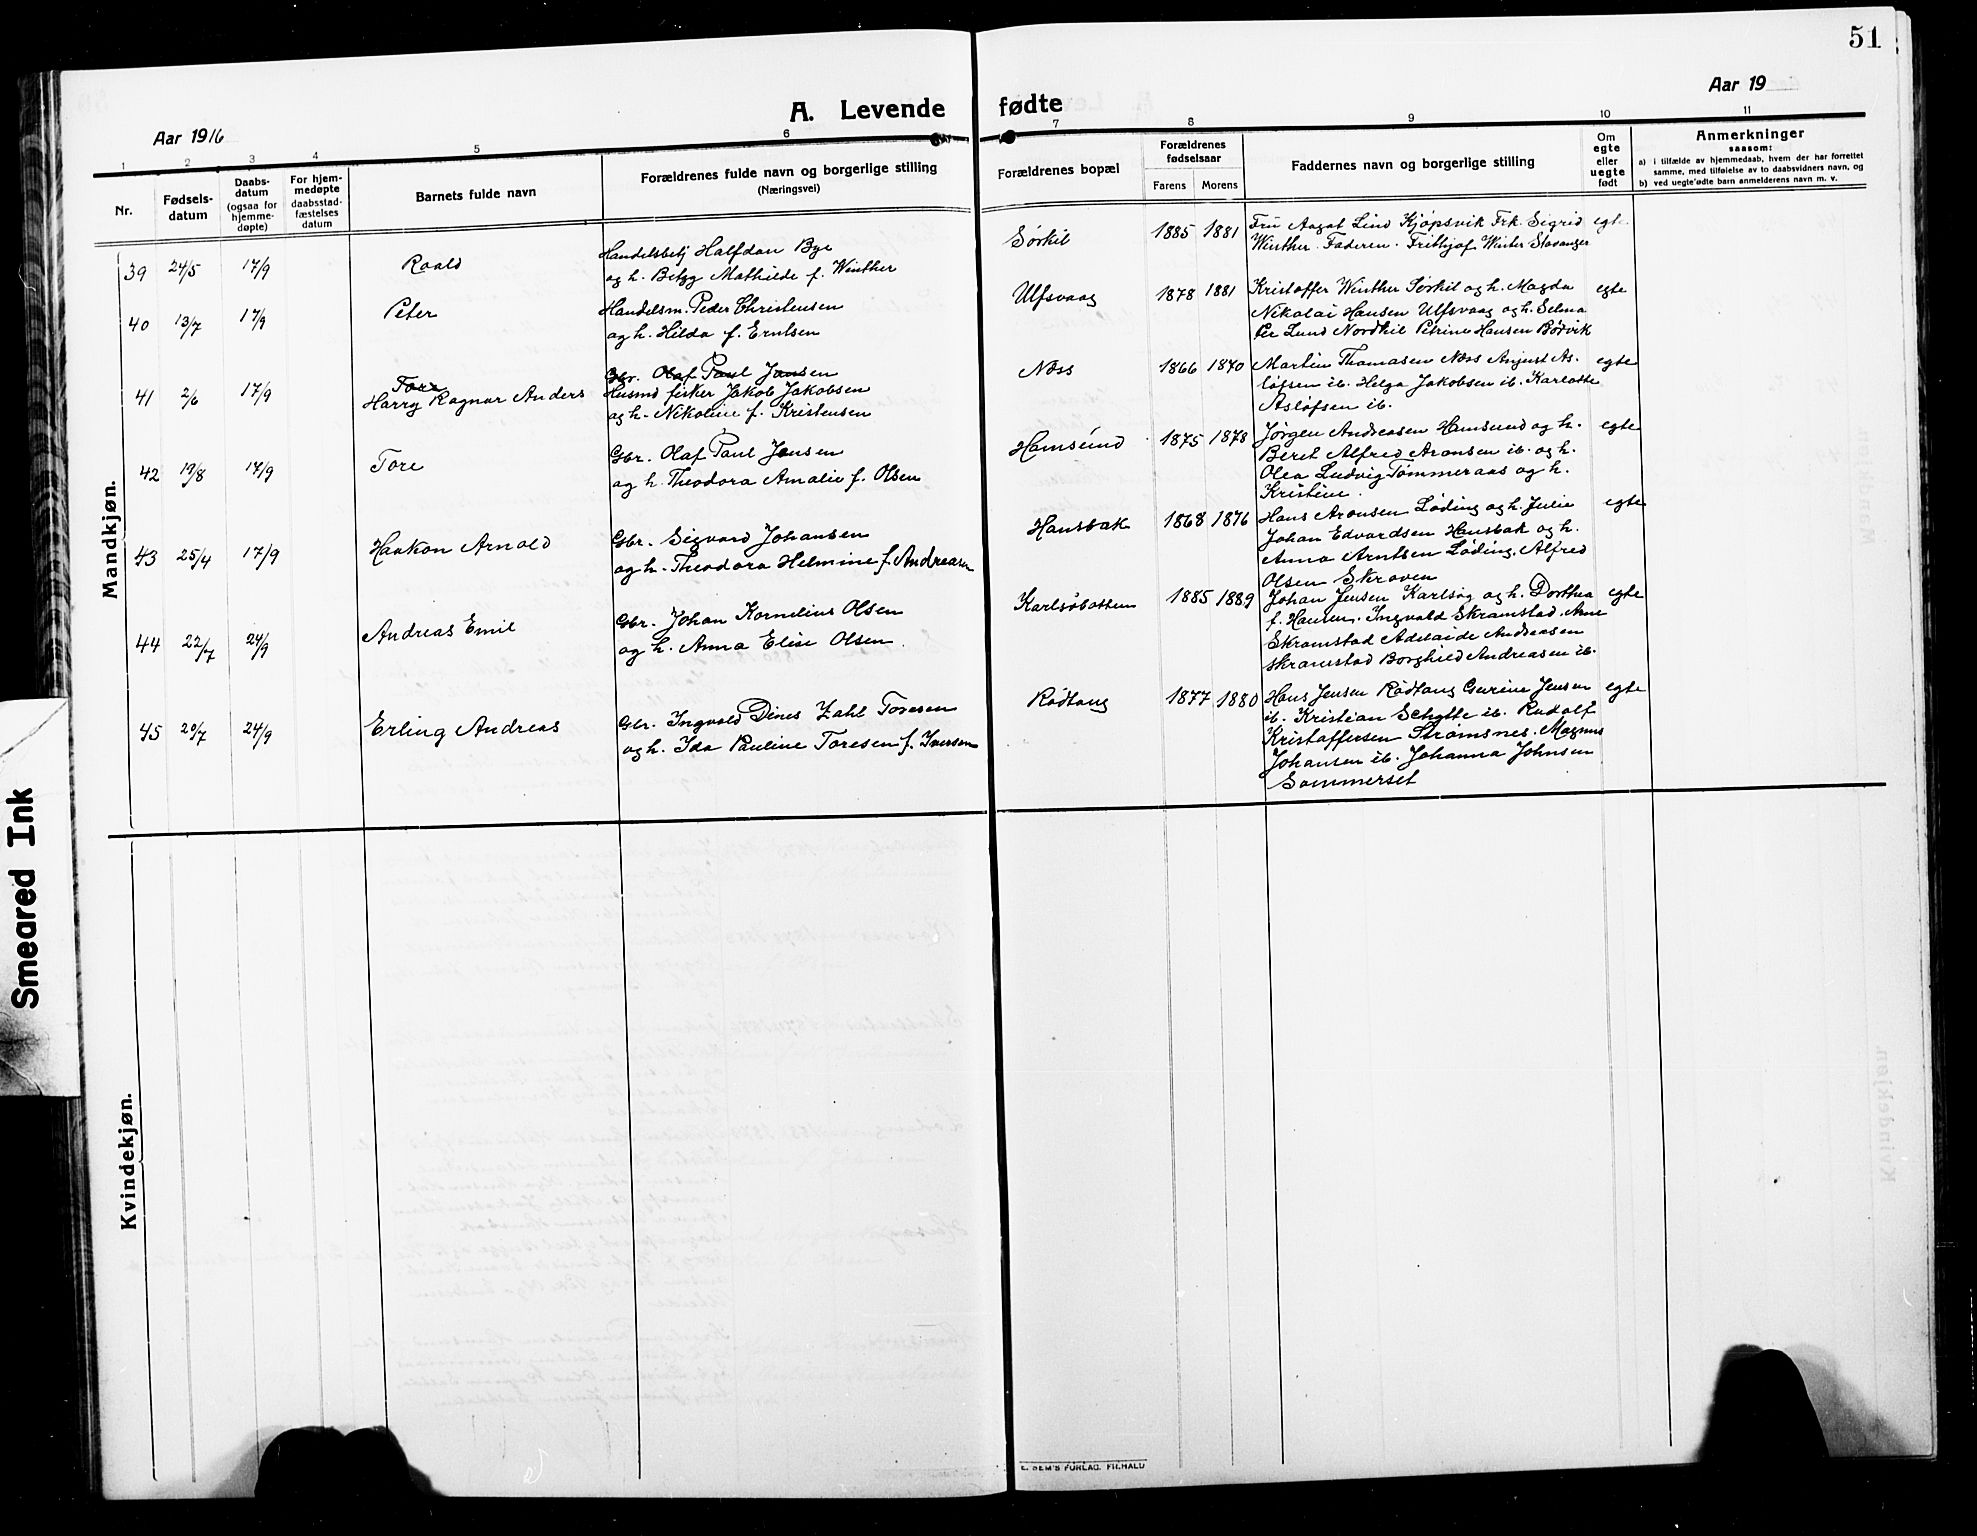 51
A. Levende fødte
Aar 1916
Aar 19
1 2 3 4 5 6 7 8 9 10 11
Nr.
Fødsels-
datum
Daabs-
datum
(ogsaa for
hjemme-
døpte)
For hjem-
medøpte
daabsstad-
fæstelses
datum
Barnets fulde navn
Forældrenes fulde navn og borgerlige stilling
(Næringsvei)
Forældrenes bopæl
Forældrenes
fødselsaar
Farens Morens
Faddernes navn og borgerlige stilling
Om
egte
eller
uegte
født
Anmerkninger
saasom:
a) i tilfælde av hjemmedaab, hvem der har forrettet
samme, med tilføielse av to daabsvidners navn, og
b) ved uegte fødte barn anmelderens navn m. v.
Mandkjøn.
39 24/5 17/9 Roald
Handelsbetj Halfdan Bye
og h. Betzy Mathilde f. Winther
Sørkil 1885 1881
Fru Aagot Lind Kjøpsvik Frk. Sigrid
Winther. Faderen. Frithjof Winter Stavanger
egte
40 13/7 17/9 Peter
Handelsm. Peder Christensen
og h. Hilda f. Erntsen
Ulfsvaag 1878 1881
Kristoffer Winther Sørkil og h. Magda
Nikolai Hansen Ulfsvaag og h. Selma
Per Lund Nordkil Petrine Hansen Bødvik
egte
41 2/6 17/9 Tore
Harry Ragnar Anders
Gbr. Olaf Paul Jansen
Husmd fisker Jakob Jakobsen
og h. Nikoline f. Kristensen
Næss 1866 1870
Martin Thomasen Næss Anjust As-
løfsen ib. Helga Jakobsen ib. Karlotte
Asløfsen ib.
egte
42 19/8 17/9 Tore
Gbr. Olaf Paul Jensen
og h. Theodora Amalie f. Olsen
Hamsund 1875 1878
Jørgen Andreasen Hamsund og h.
Beret Alfred Aronsen ib. og h.
Olea Ludvig Tømmeraas og h.
Kristine.
egte
43 25/4 17/9 Haakon Arnold
Gbr. Sigvard Johansen
og h. Theodora Helmine f. Andreasen
Hansbak 1868 1876
Hans Aronsen Løding og h. Julie
Johan Edvardsen Hansbak og h.
Anna Arntsen Løding. Alfred
Olsen Skroven
egte
44 22/7 24/9 Andreas Emil
Gbr. Johan Kornelius Olsen
og h. Anna Elise Olsen.
Karlsøbotten 1885 1889
Johan Jensen Karlsøg og h. Dorthea
f. Hansen. Ingvald Skramstad. Arne
Skramstad Adelaide Andreasen
Skramstad Borghild Andreasen ib.
egte
45 20/7 24/9 Erling Andreas
Gbr. Ingvald Dines Zahl Toresen
og h. Ida Pauline Toresen f. Iversen
Rødtang 1877 1880
Hans Jensen Rødtang Gurine Jensen
ib. Kristian Schytte ib. Rudolf
Kristoffersen Strømsnes. Magnus
Johansen ib. Johanna Johnsen
Sommerset
egte
Kvindekjøn.
Smeared Ink
E. SEM'S FORLAG. FR.HALD